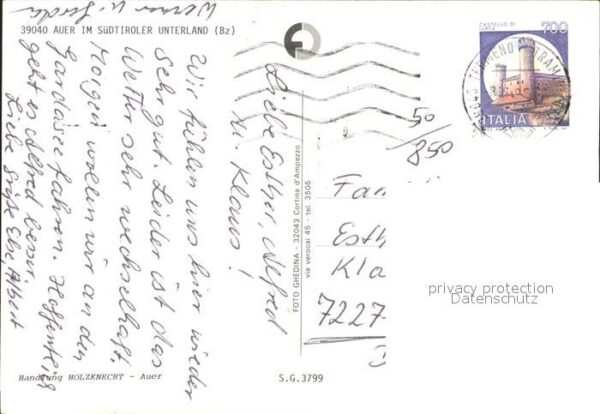 39040 AUER IM SÜDTIROLER UNTERLAND (Bz)
Liebe Esther, Alfred
u. Klaus!
Wir fühlen uns hier wieder
sehr gut. Leider ist das
Wetter sehr wechselhaft.
Morgen wollen wir an den
Gardasee fahren. Hoffentlich
geht es Alfred besser.
Liebe Grüße Else, Albert
Werner u. Gerda
Handlung HOLZKNECHT - Auer
S.G.3799
FOTO GHEDINA - 32043 Cortina d'Ampezzo
via verocai 45 - tel. 3505
CASTELLO DI
700
ITALIA
50/850
Fam
Esth
Kla
7227
privacy protection
Datenschutz